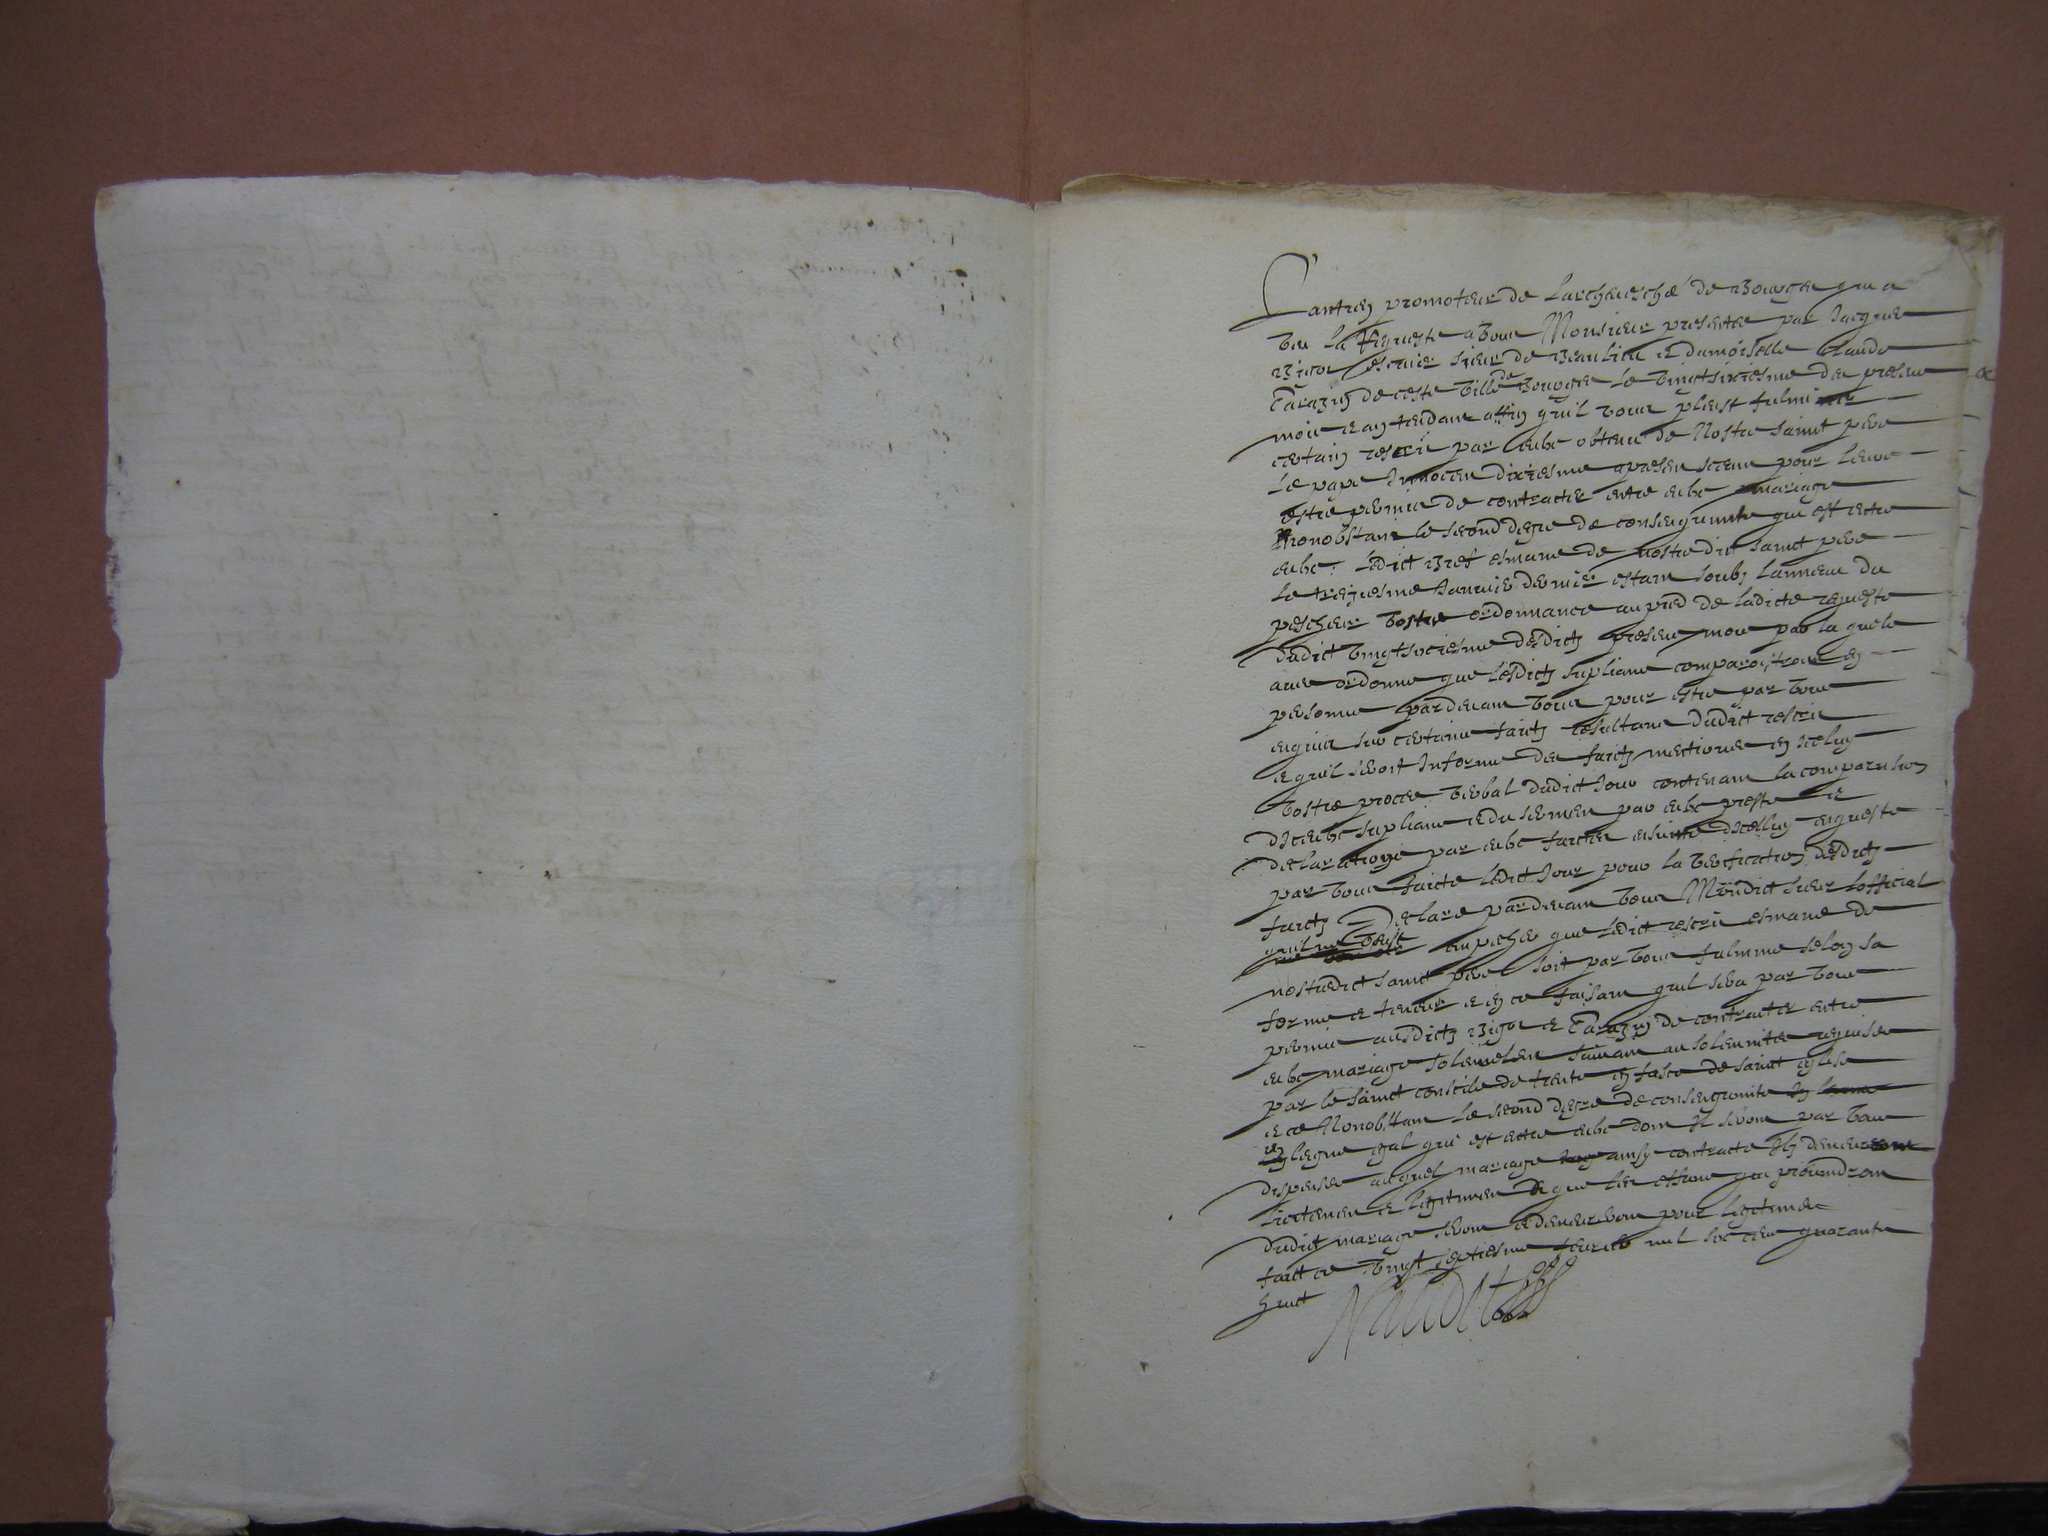 promoteur de Larchevesché de Bourges qui a
veu La Requeste a vous Monsieur presentee par Jacques
Bigot escuier sieur de Beaulieu et damoiselle Claude
Sarazin de ceste ville de Bourges le vingtsixiesme des presens
mois et an tendant affin qu'il vous plaist fulminer
certain rescrit par eulx obtenu de Nostre sainct pere
Le pape Innocent dixiesme a present seant pour leurs
estre permis de contracter entre eulx mariage
Nonobstant le second degre de consanguinite qui est entre
eulx ledict Bref esmane de nostredict sainct pere
Le treiziesme Janvier dernier estant soubz lanneau du
pescheur vostre ordonnance au pied de ladicte requeste
dudict vingtsixiesme desdictz presens mois par laquele
aves ordonne que lesdictz supliants comparoistront en
personne pardevant vous pour estre par vous
enquis sur certains faictz resultans dudict rescrit
et qu'il seroit Informe des faictz mentiones en iceluy
vostre proces verbal dudict Jour contenant la comparution
diceulx supliants et du serment par eulx preste et
declarations par eulx faictes ensuitte dicelluy enqueste
par vous faicte ledict Jour pour la verification desdictz
faictz Declare pardevant vous Mondict sieur Lofficial
qu'il ne veust empecher que ledict rescrit esmane de
nostredict sainct pere soit par vous fulmine selon sa
forme et teneur et en ce faisant quil sera par vous
permis ausdictz Bigot et Sarazin de contracter entre
eulx mariage solemelement suivant au solemnites requises
par le sainct concile de trente en fasce de saint eglise
et ce Nonobstant le second degre de consanguinite
en legne egal qui est entre eulx dont Ilz seront par vous
dispenses auquel mariage ainsy contracte Ilz demeureront
licitement et legitimement et que les effans qui proviendront
dudict mariage seront et demeureront pour legitimes
faict ce vingt septiesme febvrier mil six cens quarante
huict